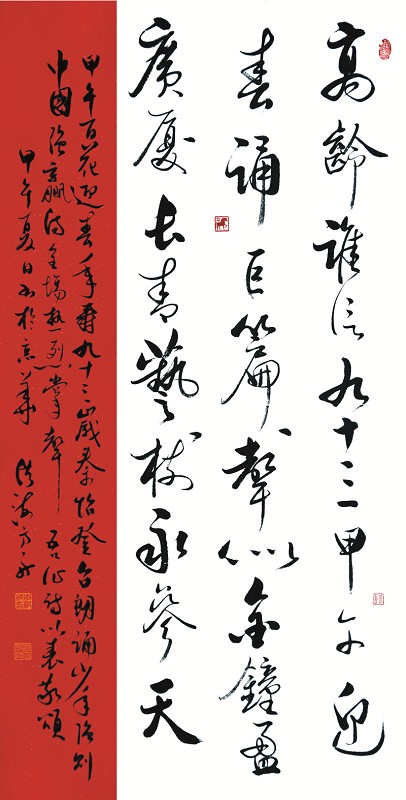 高齡誰信九十三甲午迎
春誦巨篇聲似金鐘盈
廣廈长青藝樹永參天
甲午百花迎春年壽九十三歲秦怡登台朗誦少年強則
中國強贏得全場熱烈掌聲 吾作詩以表敬頌
甲午夏日書於京華